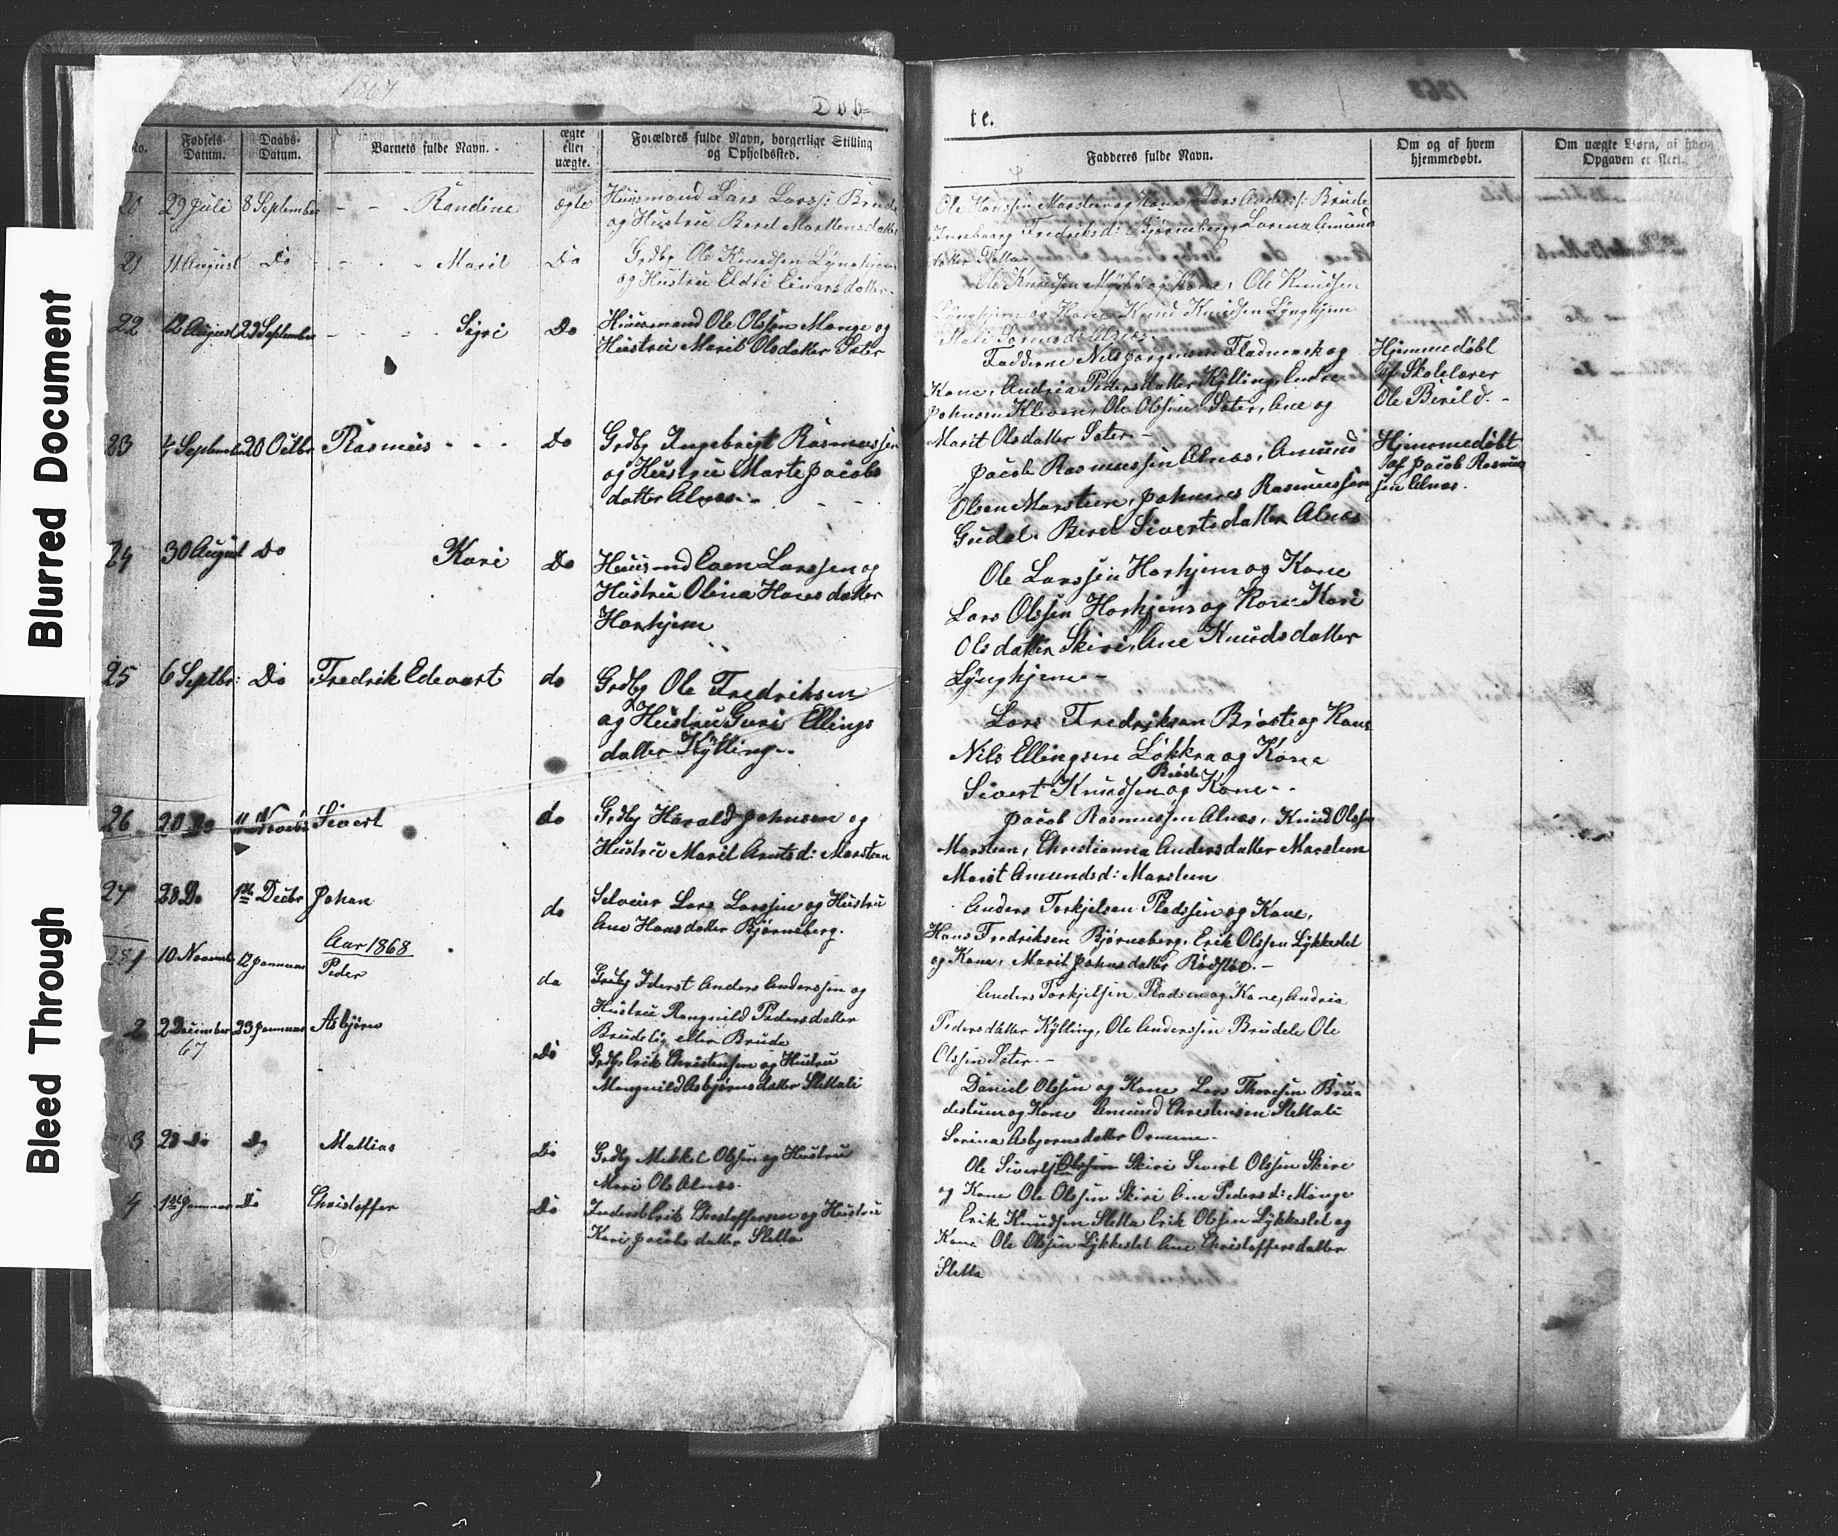 Blurred Document
Bleed Through
1867
Døb=
te.
1868
No.
Fødsels-
Datum.
Daabs-
Datum.
Barnets fulde Navn.
ægte
eller
uægte.
Forældres fulde Navn, borgerlige Stilling
og Opholdssted.
Fadderes fulde Navn.
Om og af hvem
hjemmedøbt.
Om uægte Børn, af hvem
Opgaven er skeet.
20 29 Juli 8 September - - Randine ægte Huusmand Lars Larss: Brude
og Hustru Berel Martensdatter
Ole Hanssen Marsten og Kone, Lars Anders: Brude
Ingeborg Fredriksd: Bjørneberg, Lorina Amunds
datter
21 11 August Do - - - Marit Do Grdbg Ole Knudsen Lynghjem
og Hustru Eldri Einarsdatter
Ole Knudsen og Kone, Ole Knudsen
Lynghjem og Kone Knud Knudsen Lynghjem
22 12 August 29 September - - - Sigri Do Huusmand Ole Olssen Monge og
Hustru Marit Olsdatter Sæter
Fadderne Nils Jørgensen Fladmark og
Kone, Andria Pedersdatter Kylling, Andre
Johnsen Kleven, Ole Olssen Sæter, Ane og
Marit Olsdatter Sæter -
Hjemmedøbt
af Skolelærer
Ole Berild. -
23 4 September 20 Octbr Rasmus - - - Do Grdbg Ingebrigt Rasmussen
og Hustru Marte Jacobs
datter Alnæs. -
Jacob Rasmussen Alnæs, Amund
Olsen Marsteen, Johannes Rasmussen
Gudal. Berel Sivertsdatter Alnæs
Hjemmedøbt
af Jacob Rasmus
sen Alnæs.
24 30 August Do Kari Do Huusmd Even Larssen og
Hustru Olina Hansdatter
Horhjem
Ole Larssen Horhjem og Kone
Lars Olssen Horhjem og Kone Kari
Olsdatter Skiri, Ane Knudsdatter
Lynghjem -
25 6 Septbr: Do Fredrik Edevart do Grdbg Ole Fredriksen
og Hustru Guri Ellings
datter Kylling. -
Lars Fredriksen Brøste og Kone
Nils Ellingsen Løkkra og Kone
Brøste
Sivert Knudsen og Kone - -
26 20 Do 11 Novbr Sivert do Grdbg Harald Johnsen og
Hustru Marit Arntsd: Marsteen
Jacob Rasmussen Alnæs, Knud Olssen
Marsteen, Christianna Andersdatter Marsteen
Marit Amundsd: Marsteen
27 28 Do 1ste Decbr Johan do Selveier Lars Larssen og Hustru
Ane Hansdatter Bjørneberg.
Anders Torkjelsen Pladssen og Kone,
Hans Fredriksen Bjørneberg, Erik Olssen Lykkeslet
og Kone, Marit Johnsdatter Rødstøl. -
Aar 1868
1 10 Novemb 12 Januar Peder do Grdbg Iderst Anders Anderssen og
Hustru Rangnild Pedersdatter
Brudelig eller Brude
Anders Torkjelsen Pladsen og Kone, Andria
Pedersdatter Kylling, Ole Anderssen Brudele Ole
Olssen Sæter - -
2 2 December 23 Januar Asbjørn Do Grdbg Erik Christensen og Hustru
67
Mangnild Asbjørnsdatter Slettali
Daniel Olssen og Kone Lars Thoresen Bru-
destuen og Kone Amund Christensen Slettali
Sorina Asbjornsdatter Ormem -
3 28 Do Do Mattias Do Grdbg Mikkel Olssen og Hustru
Mari Ols Alnæs.
Ole Sivertsen Olssen Skiri Sivert Olssen Skire
og Kone Ole Olssen Skiri Ane Pedersd: Monge
4 1ste Januar Do Christoffer Do Inderst Erik Christoffersen og Hustru
Kari Jacobsdatter Sletta
Erik Knudsen Sletta Erik Olssen Lykkeslet og
Kone Ole Olssen Lykkeslet Ane Christoffersdatter
Sletta